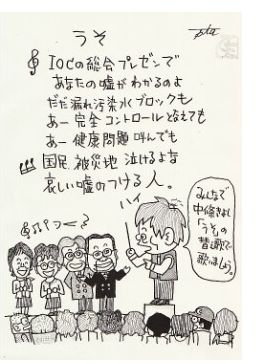 うそ
IOCの総会プレゼンで
あなたの嘘がわかるのよ
だだ漏れ汚染水ブロックも
あー完全コントロールとなえても
あー健康問題呼んでも
国民、被災地泣けるよな
哀しい嘘のつける人。
ハイ
みんなで
中條きよし
「うそ」の
替え歌で
歌いましょう。